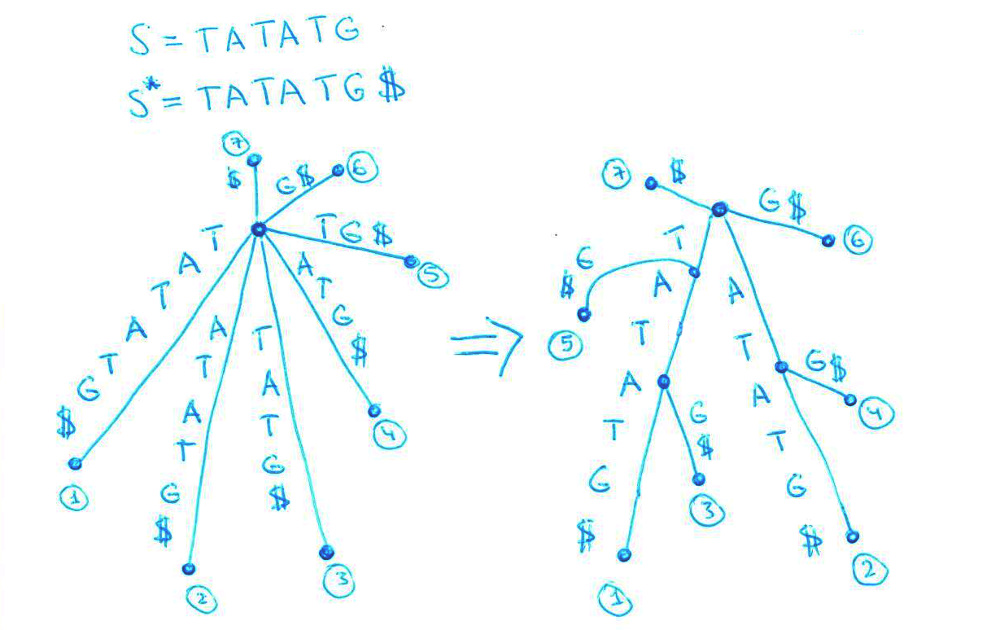 S = TATATG
S* = TATATG$
7
$
G$
6
TG$
5
TATATG$
1
ATATG$
2
TATG$
3
ATG$
4
⇒
7
$
G$
6
T
G$
5
AT
ATG$
1
G$
3
AT
G$
4
ATG$
2